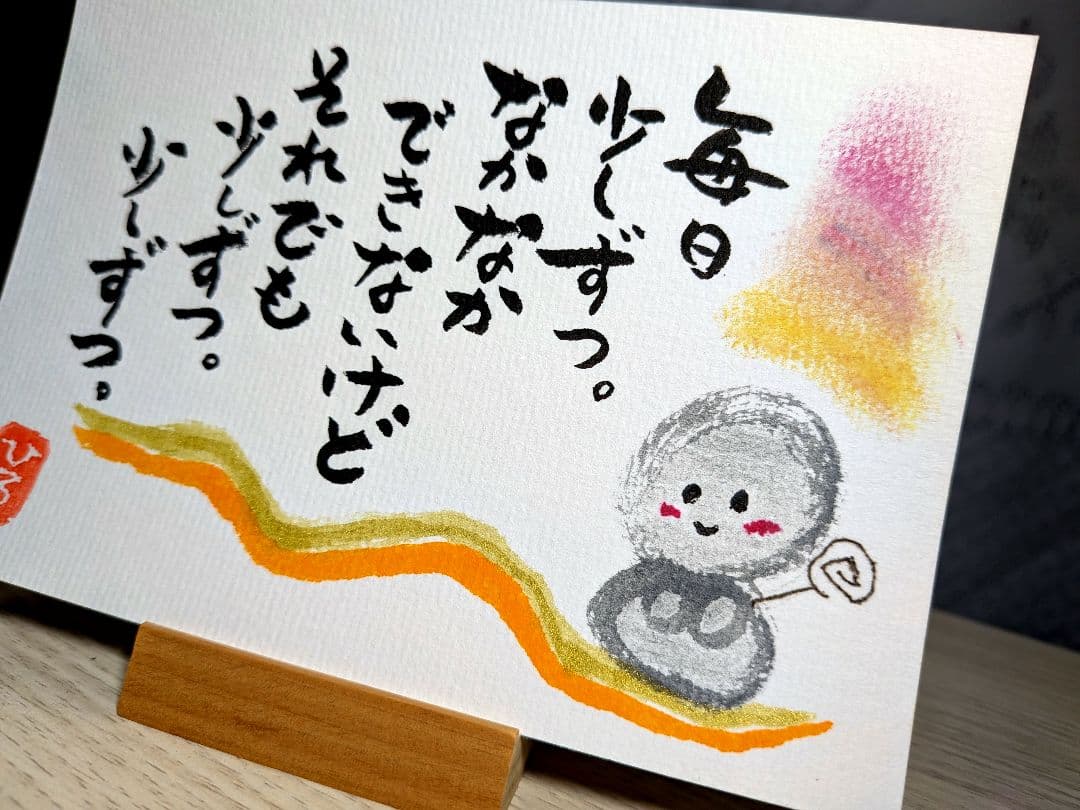 毎日
少しずつ。
なかなか
できないけど
それでも
少しずつ。
少しずつ。
ひろ